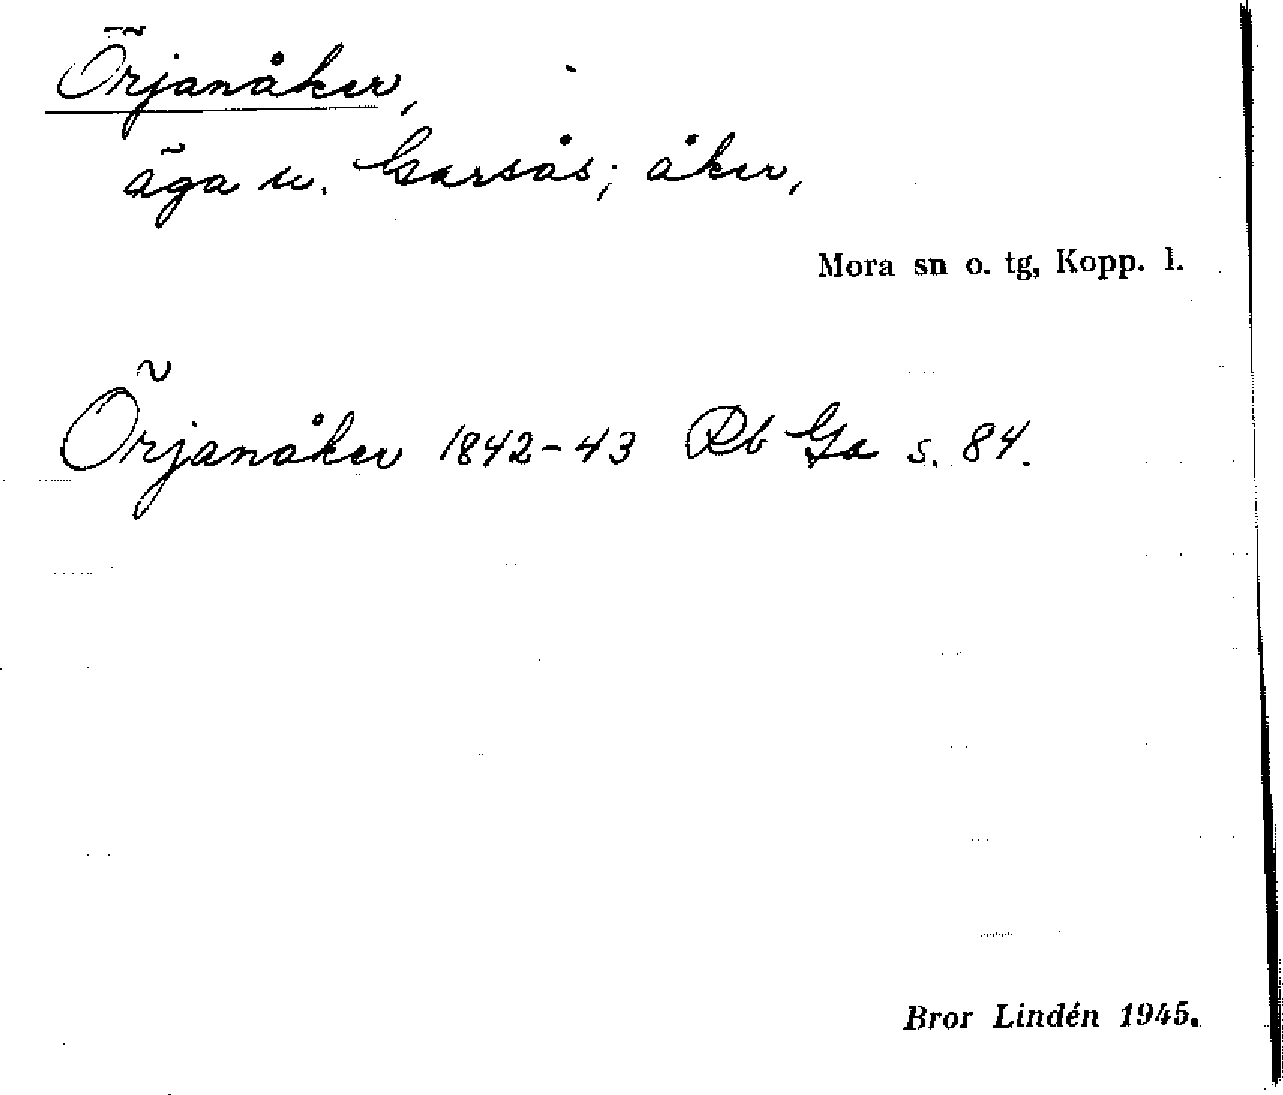 Örjanåker,
äga u. Garsås; åker,
Mora sn o. tg, Kopp. l.
Örjanåker 1842-43 Rb Ga s. 84.
Bror Lindén 1945.